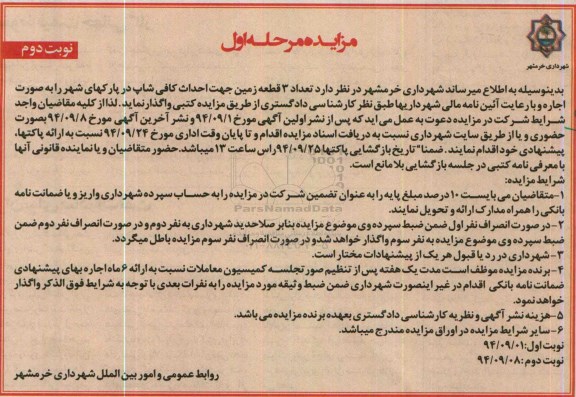 مزایده مرحله اول
نوبت دوم
شهرداری خرمشهر
بدینوسیله به اطلاع میرساند شهرداری خرمشهر در نظر دارد تعداد ۳ قطعه زمین جهت احداث کافی شاپ در پارکهای شهر را به صورت
اجاره و با رعایت آئین نامه مالی شهرداریها طبق نظر کارشناسی دادگستری از طریق مزایده کتبی واگذار نماید. لذا از کلیه متقاضیان واجد
شرایط شرکت در مزایده دعوت به عمل می اید که پس از نشر اولین آگهی مورخ ۹۴/۰۹/۱ و نشر آخرین آگهی مورخ ۹۴/۰۹/۸ بصورت
حضوری و یا از طریق سایت شهرداری نسبت به دریافت اسناد مزایده اقدام و تا پایان وقت اداری مورخ ۹۴/۰۹/۲۴ نسبت به ارائه پاکتها،
پیشنهادی خود اقدام نمایند. ضمنا" تاریخ بازگشایی پاکتها ۹۴/۰۹/۲۵ راس ساعت ۱۳ میباشد. حضور متقاضیان و یا نماینده قانونی آنها
با معرفی نامه کتبی در جلسه بازگشایی بلامانع است.
شرایط مزایده:
۱-متقاضیان می بایست ۱۰ درصد مبلغ پایه را به عنوان تضمین شرکت در مزایده را به حساب سپرده شهرداری واریز و یا ضمانت نامه
بانکی را همراه مدارک ارائه و تحویل نمایند.
۲-در صورت انصراف نفر اول ضمن ضبط سپرده وی موضوع مزایده بنابر صلاحدید شهرداری به نفر دوم و در صورت انصراف نفر دوم ضمن
ضبط سپرده وی موضوع مزایده به نفر سوم واگذار خواهد شد و در صورت انصراف نفر سوم مزایده باطل میگردد.
۳-شهرداری در رد یا قبول هر یک از پیشنهادات مختار است.
۴-برنده مزایده موظف است مدت یک هفته پس از تنظیم صورتجلسه کمیسیون معاملات نسبت به ارائه ۶ ماه اجاره بهای پیشنهادی
ضمانت نامه بانکی اقدام در غیر اینصورت شهرداری ضمن ضبط و ثیقه مورد مزایده را به نفرات بعدی با توجه به شرایط فوق الذکر واگذار
خواهد نمود.
۵-هزینه نشر آگهی و نظریه کارشناسی دادگستری بعهده برنده مزایده می باشد.
۶-سایر شرایط مزایده در اوراق مزایده مندرج میباشد.
نوبت اول: ۹۴/۰۹/۰۱
نوبت دوم: ۹۴/۰۹/۰۸
روابط عمومی و امور بین الملل شهرداری خرمشهر
ParsNamadData